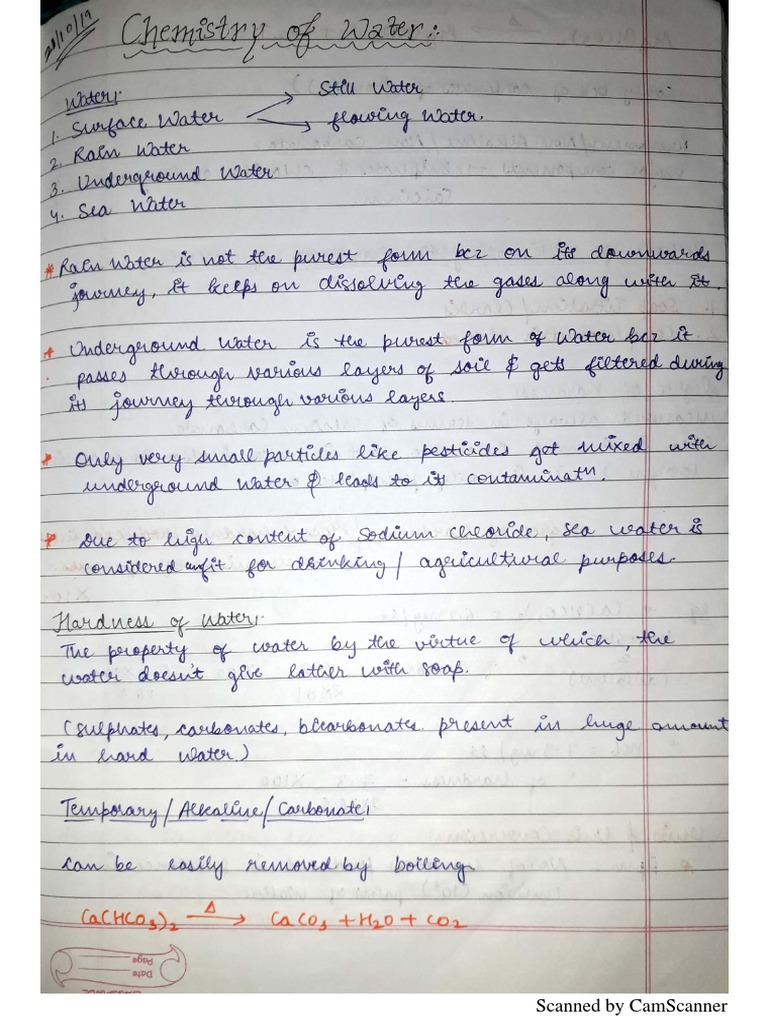 28/10/19
Chemistry of Water:
Water:
1. Surface Water → Still Water
→ flowing Water.
2. Rain Water
3. Underground Water
4. Sea Water
* Rain Water is not the purest form bcz on its downwards
journey, it keeps on dissolving the gases along with it.
* Underground Water is the purest form of Water bcz it
passes through various layers of soil & gets filtered during
its journey through various layers.
* Only very small particles like pesticides got mixed with
underground Water & leads to its contaminatⁿ.
* Due to high content of Sodium Chloride, Sea water is
considered unfit for drinking / agricultural purposes.
Hardness of Water:
The property of water by the virtue of which, the
water doesn't give lather with soap.
(Sulphates, carbonates, bicarbonates present in huge amount
in hard water.)
Temporary/Alkaline/Carbonate:
Can be easily removed by boiling.
Ca(HCO₃)₂ —Δ→ CaCO₃ + H₂O + CO₂
Date
Page
Scanned by CamScanner